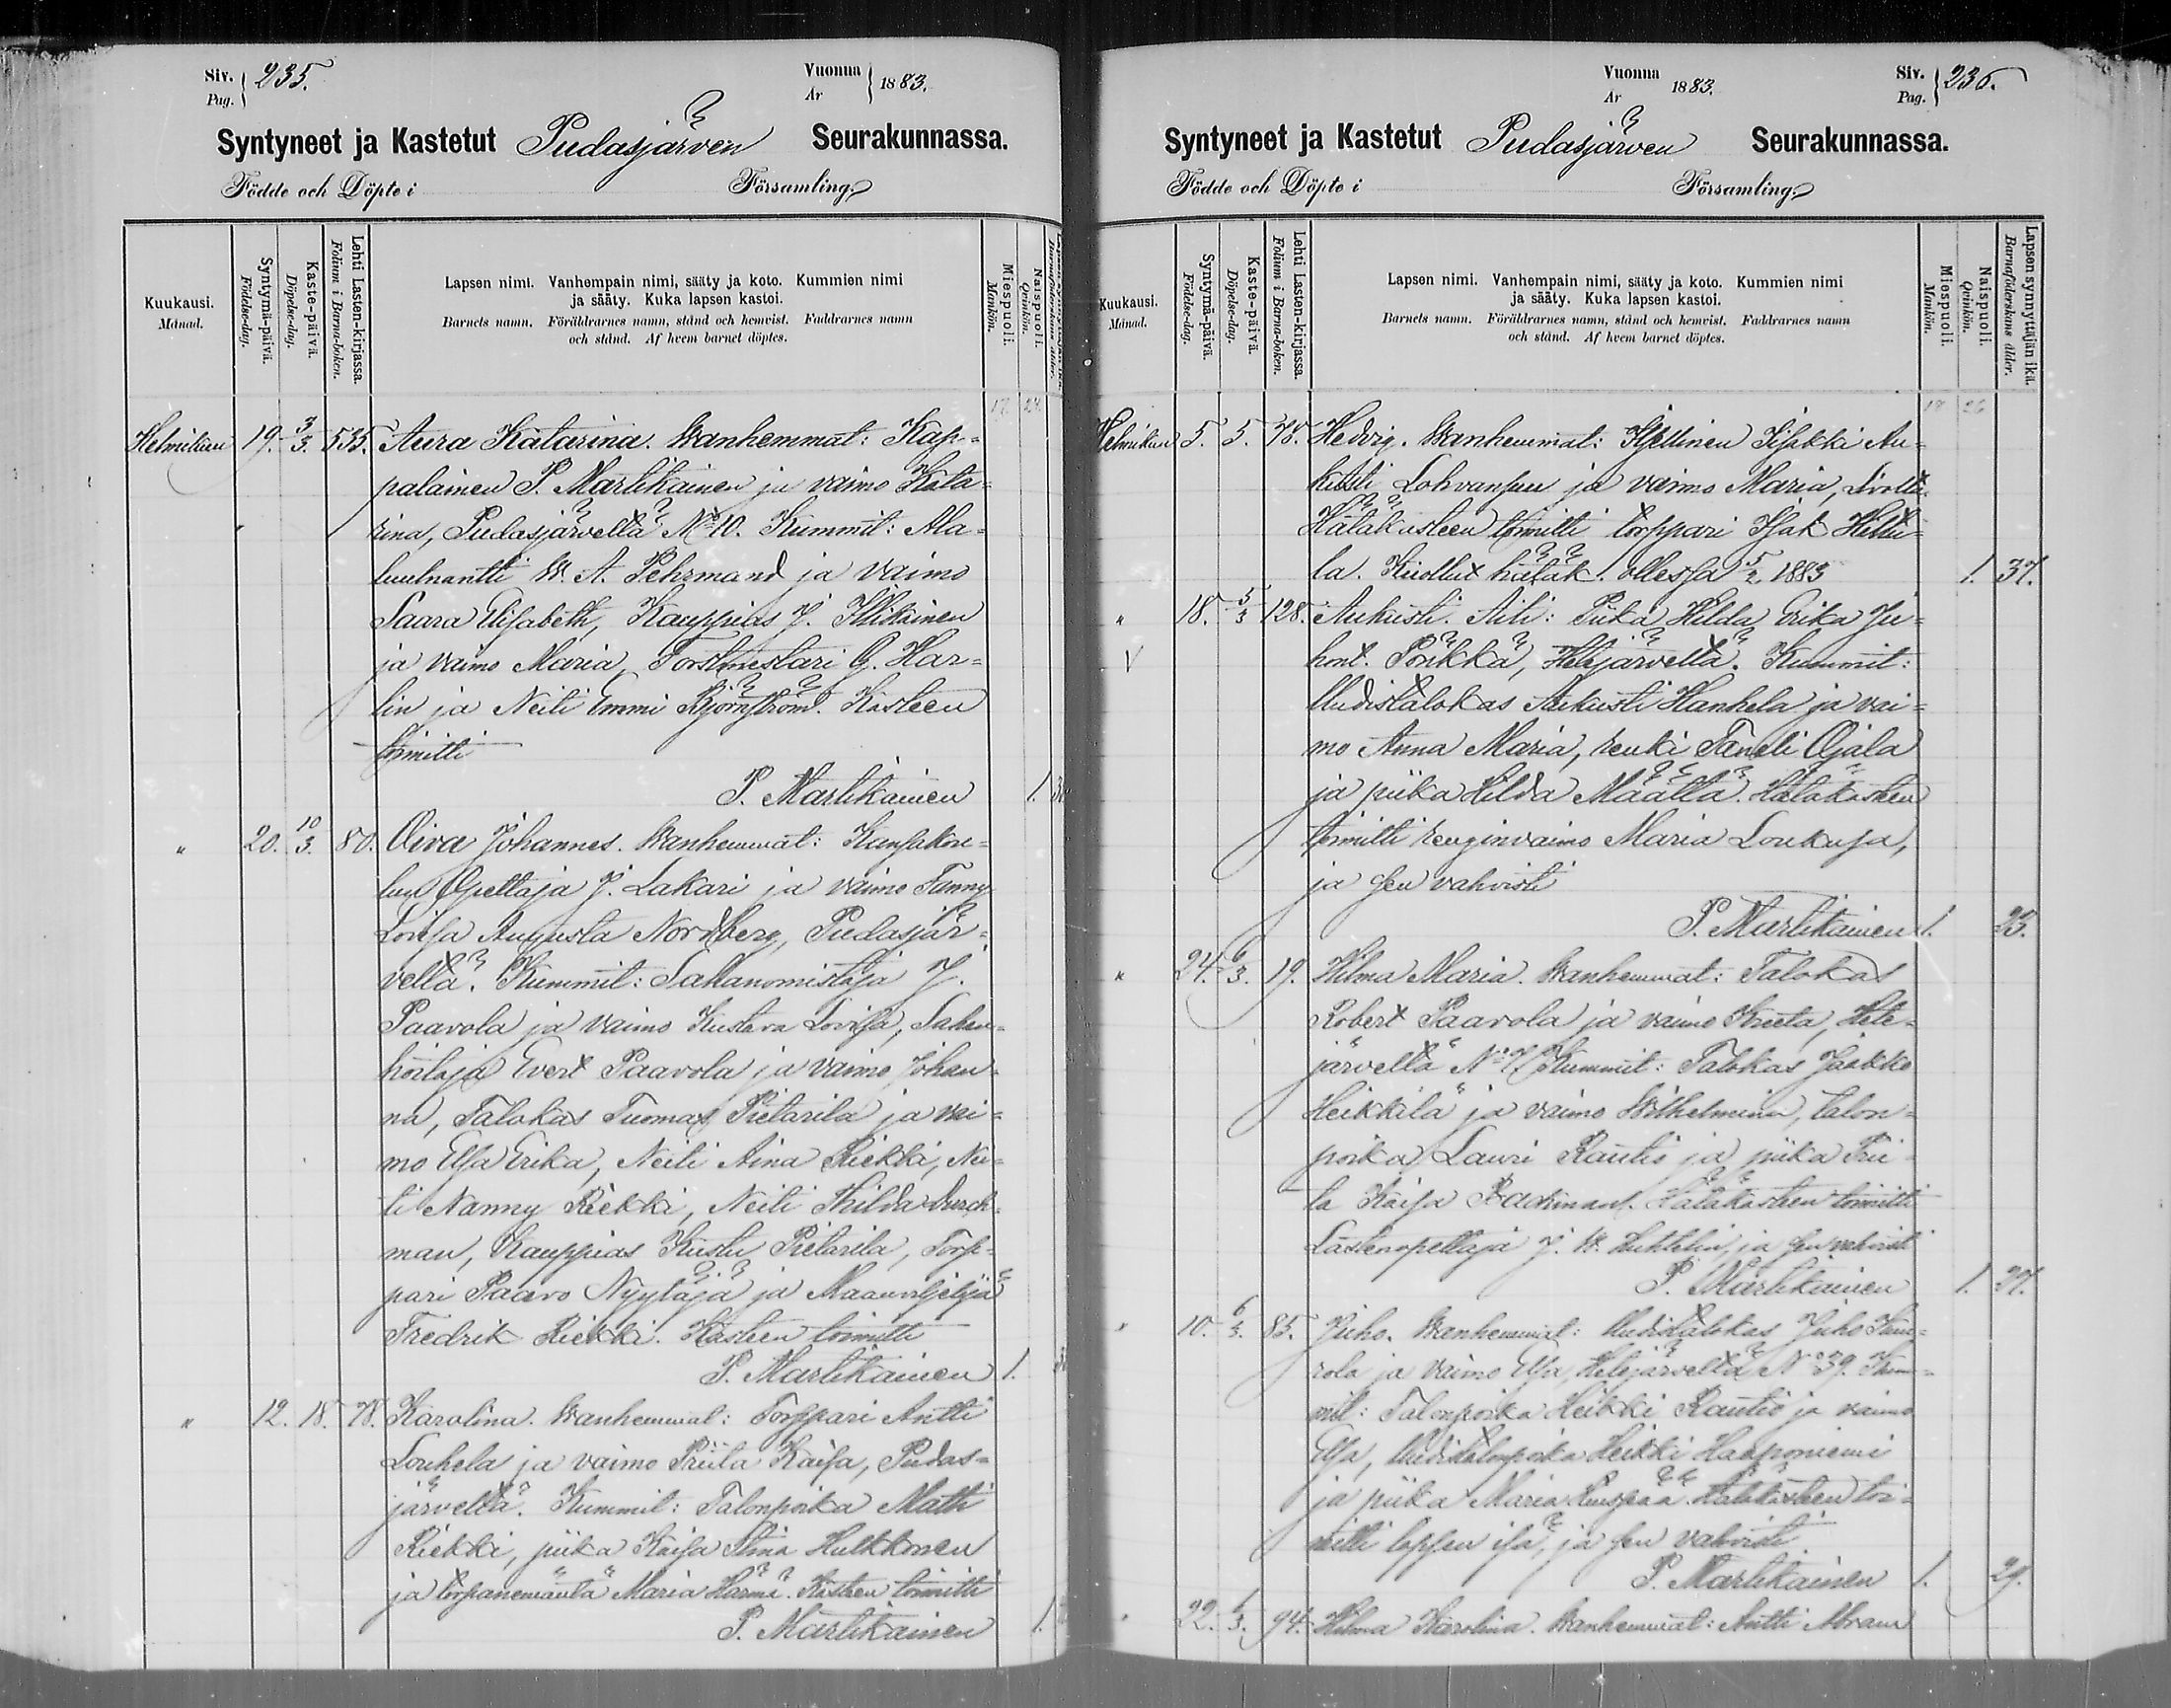 Siv. 235.
Pag.
Vuonna 1883.
År
Syntyneet ja Kastetut Pudasjärven Seurakunnassa.
Födde och Döpte i Församling.
Kuukausi.
Månad.
Syntymä-päivä.
Födelse-dag.
Kaste-päivä.
Döpelse-dag.
Lehti Lasten-kirjassa.
Folium i Barna-boken.
Lapsen nimi. Vanhempain nimi, sääty ja koto. Kummien nimi
ja sääty. Kuka lapsen kastoi.
Barnets namn. Föräldrarnes namn, stånd och hemvist. Faddrarnes namn
och stånd. Af hvem barnet döptes.
Miespuoli.
Mankön.
Naispuoli.
Qvinkön.
17. 24.
Helmikuu 19. 3/3. 535. Aura Katarina. Wanhemmat: Kap-
palainen P. Martikainen ja vaimo Kata-
rina, Pudasjärveltä No 10. Kummit: Ala-
luutnantti W. A. Pehrmand ja vaimo
Saara Elisabeth, Kauppias J.
ja vaimo Maria, Forstmestari G. Har-
lin ja Neiti Emmi Björnström. Kasteen
toimitti
P. Martikainen 1.
" 20. 10/3. 80. Oiva Johannes. Wanhemmat: Kansakou-
lun Opettaja J. Lakari ja vaimo Fanny
Lovisa Augusta Nordberg, Pudasjär-
veltä. Kummit: Sahanomistaja J.
Paavola ja vaimo Kustava Lovisa, Sahan-
hoitaja Evert Paavola ja vaimo Johan-
na, Talokas Tuomas Pietarila ja vai-
mo Elsa Erika, Neiti Aina Riekki, Nei-
ti Nanny Riekki, Neiti Hilda Durch-
man, Kauppias Kustu Pietarila, Torp-
pari Paavo Nyytäjä ja Maanviljelijä
Fredrik Riekki. Kasteen toimitti
P. Martikainen 1.
" 12. 18. 78. Karolina. Wanhemmat: Torppari Antti
Louhela ja vaimo Priita Kaisa, Pudas-
järveltä. Kummit: Talonpoika Matti
Riekki, piika Kaisa Stina Hulkkonen
ja torpanemäntä Maria Härmä. Kasteen toimitti
P. Martikainen 1.
Vuonna 1883.
År
Siv. 236.
Pag.
Syntyneet ja Kastetut Pudasjärven Seurakunnassa.
Födde och Döpte i Församling.
Kuukausi.
Månad.
Syntymä-päivä.
Födelse-dag.
Kaste-päivä.
Döpelse-dag.
Lehti Lasten-kirjassa.
Folium i Barna-boken.
Lapsen nimi. Vanhempain nimi, sääty ja koto. Kummien nimi
ja sääty. Kuka lapsen kastoi.
Barnets namn. Föräldrarnes namn, stånd och hemvist. Faddrarnes namn
och stånd. Af hvem barnet döptes.
Miespuoli.
Mankön.
Naispuoli.
Qvinkön.
Lapsen synnyttäjän ikä.
Barnaföderskans ålder.
18 26
Helmikuu 5. 5. 78. Hedvig. Wanhemmat: Iisakki Au-
kusti Lohvansuu ja vaimo Maria, Livolta.
Hätäkasteen toimitti torppari Isak Hiltu-
la. Kuollut hätäk. ollessa 5/2 1883 1. 37.
" 18. 5/3 128. Aukusti. Äiti: Piika Hilda Erika Ju-
hont. Pönkkä, Hetejärveltä. Kummit:
Uudistalokas Aukusti Hanhela ja vai-
mo Anna Maria, renki Taneli Ojala
ja piika Hilda Määttä. Hätäkasteen
toimitti renginvaimo Maria Loukusa,
ja sen vahvisti
P. Martikainen 1. 23.
" 24. 6/3. 19. Hilma Maria. Wanhemmat: Talokas
Robert Paavola ja vaimo Kreeta, Hete-
järveltä No 7. Kummit: Talokas Jaakko
Heikkilä ja vaimo Wilhelmina, talon-
poika Lauri Rautio ja piika Prii-
ta Kaisa Backman. Hätäkasteen toimitti
Lastenopettaja J. W. Huhtelin, ja sen vahvisti
P. Martikainen 1. 27.
" 10. 6/3. 85. Juho. Wanhemmat: Uudistalokas Juho
rola ja vaimo Elsa, Hetejärveltä No 39. Kum-
mit: Talonpoika Heikki Rautio ja vaimo
Elsa, Uudistalonpoika Heikki Haaponiemi
ja piika Maria Kuuspää. Hätäkasteen toi-
mitti lapsen isä, ja sen vahvisti
P. Martikainen 1. 29.
" 22. 6/3. 94. Hilma Karolina. Wanhemmat: Antti Abram